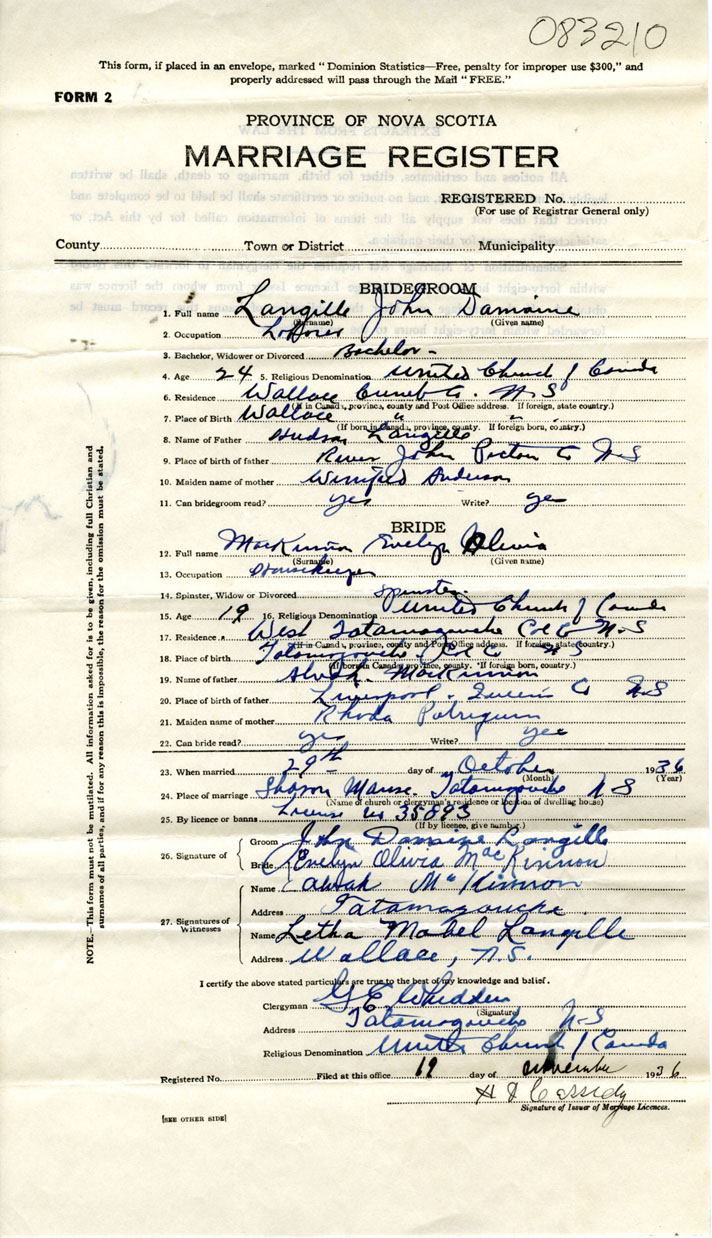 083210
This form, if placed in an envelope, marked "Dominion Statistics—Free, penalty for improper use $300," and
properly addressed will pass through the Mail "FREE."
FORM 2
PROVINCE OF NOVA SCOTIA
MARRIAGE REGISTER
REGISTERED No.
(For use of Registrar General only)
County Town or District Municipality
BRIDEGROOM
1. Full name Langille John Damaine
(Surname) (Given name)
2. Occupation Laborer
3. Bachelor, Widower or Divorced Bachelor -
4. Age 24 5. Religious Denomination United Church of Canada
6. Residence Wallace Cumb Co. N S
(If in Canada, province, county and Post Office address. If foreign, state country.)
7. Place of Birth Wallace " "
(If born in Canada, province, county. If foreign born, country.)
8. Name of Father Hudson Langille
9. Place of birth of father River John Pictou Co N S
10. Maiden name of mother Winnifred Anderson
11. Can bridegroom read? yes Write? yes
BRIDE
12. Full name MacKinnon Evelyn Olivia
(Surname) (Given name)
13. Occupation Housekeeper
14. Spinster, Widow or Divorced Spinster.
15. Age 19 16. Religious Denomination United Church of Canada
17. Residence West Tatamagouche Col Co N-S
(If in Canada, province, county and Post Office address. If foreign, state country.)
18. Place of birth Tatamagouche Col Co N S
(If born in Canada, province, county. If foreign born, country.)
19. Name of father Alvah MacKinnon
20. Place of birth of father Liverpool - Queens Co N S
21. Maiden name of mother Rhoda Patriquin
22. Can bride read? yes Write? yes
23. When married 29th day of October 1936
(Month) (Year)
24. Place of marriage Sharon Manse Tatamagouche N S
(Name of church or clergyman's residence or location of dwelling house)
25. By licence or banns License no 35893
(If by licence, give number.)
26. Signature of Groom John Damaine Langille
Bride Evelyn Olivia MacKinnon
27. Signatures of Witnesses Name Alvah McKinnon
Address Tatamagouche
Name Letha Mabel Langille
Address Wallace, N.S.
I certify the above stated particulars are true to the best of my knowledge and belief.
Clergyman G E Whidden
(Signature)
Address Tatamagouche N-S
Religious Denomination United Church of Canada
Registered No. Filed at this office 19 day of November 1936
Cassidy
Signature of Issuer of Marriage Licences.
[SEE OTHER SIDE]
NOTE.—This form must not be mutilated. All information asked for is to be given, including full Christian and
surnames of all parties, and if for any reason this is impossible, the reason for the omission must be stated.